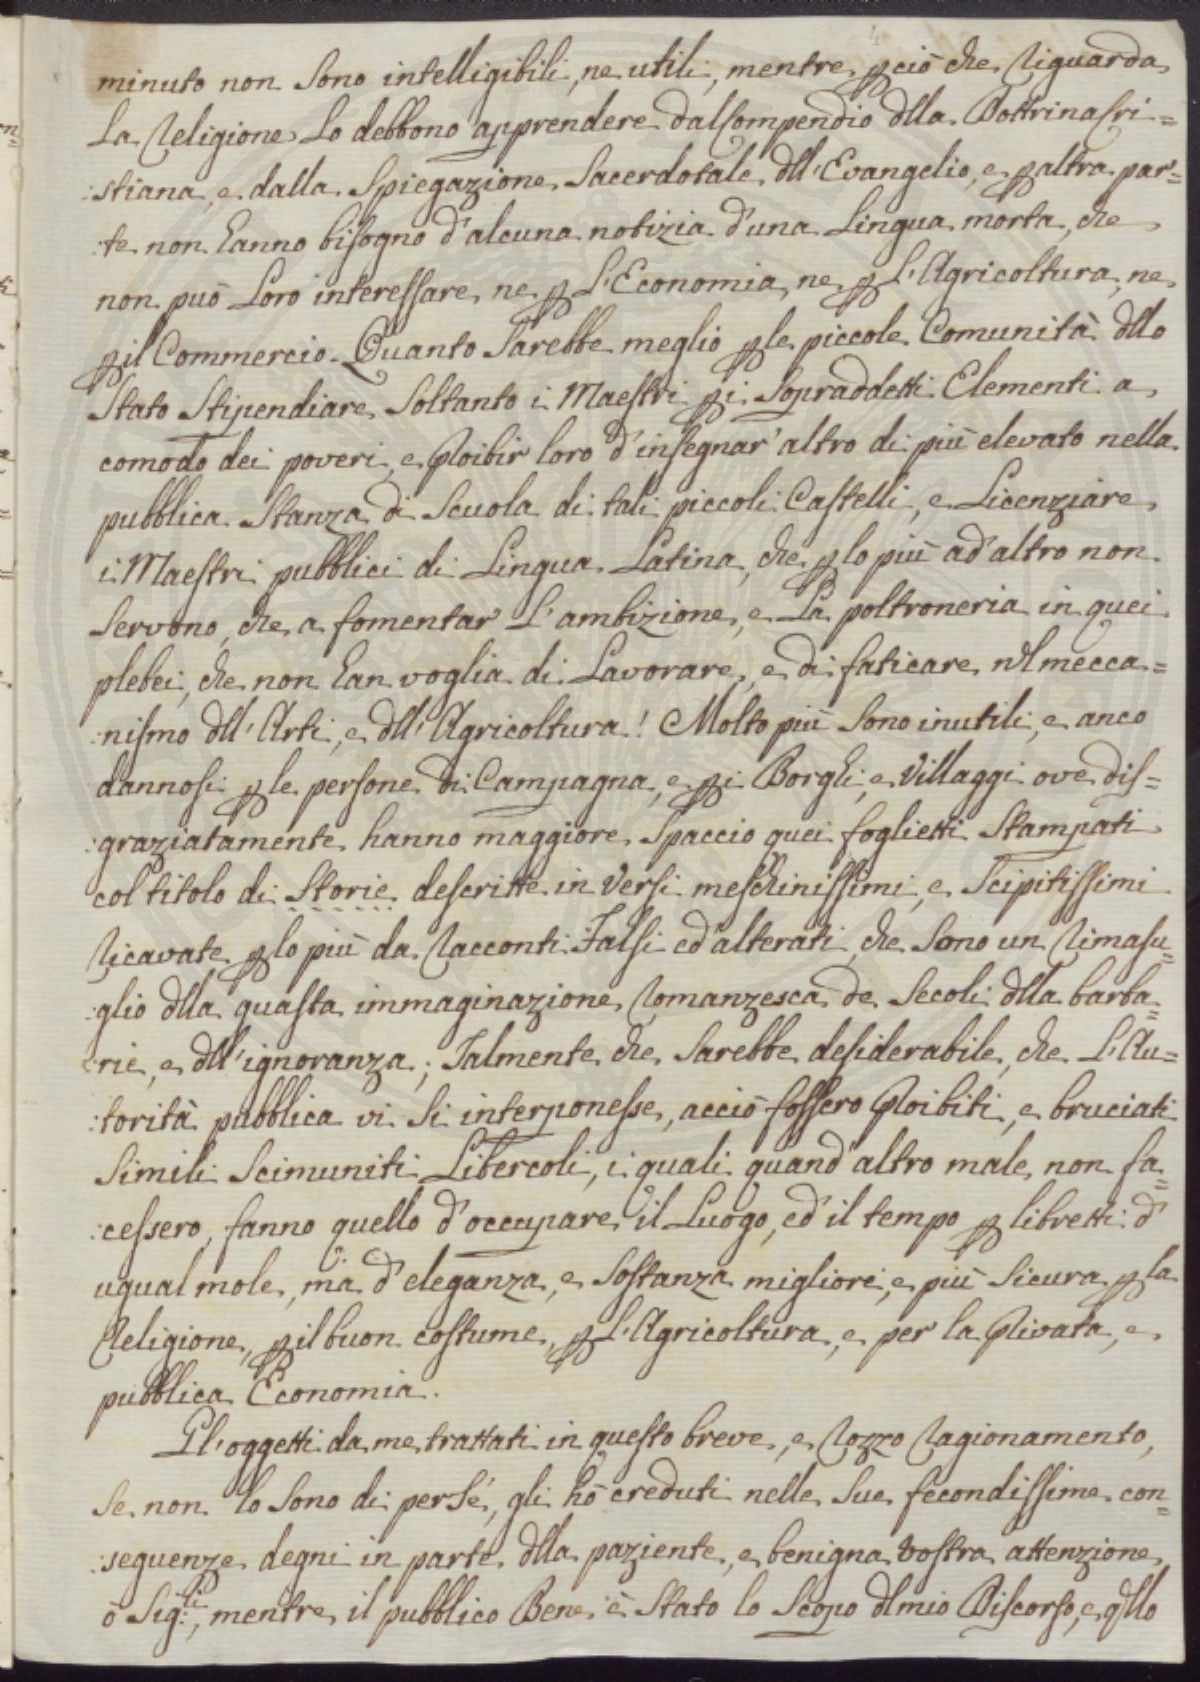 4
minuto non sono intelligibili, ne utili, mentre p ciò che riguarda
la religione lo debbono apprendere dal Compendio dlla Dottrina Cri=
:stiana, e dalla spiegazione Sacerdotale dll'Evangelio, e p altra par=
:te non hanno bisogno d'alcuna notizia d'una Lingua morta, che
non può loro interessare, ne p l'Economia, ne p l'Agricoltura, ne
p il Commercio. Quanto sarebbe meglio p le piccole Comunità dllo
Stato stipendiare soltanto i Maestri p i sopraddetti Elementi a
comodo dei poveri, e proibir loro d'insegnar'altro di più elevato nella
pubblica stanza di scuola di tali piccoli Castelli, e licenziare
i Maestri pubblici di Lingua Latina, che p lo più ad'altro non
servono, che a fomentar l'ambizione, e la poltroneria in quei
plebei, che non han voglia di lavorare, e di faticare nl mecca=
:nismo dll'Arti, e dll'Agricoltura! Molto più sono inutili, e anco
dannosi p le persone di Campagna, e p i Borghi, e Villaggi ove dis=
:graziatamente hanno maggiore spaccio quei foglietti stampati
col titolo di Storie descritte in versi meschinissimi, e scipitissimi
ricavate p lo più da racconti falsi ed'alterati, che sono un rimasu=
:glio dlla guasta immaginazione romanzesca de secoli dlla barba=
:rie, e dll'ignoranza; Talmente che sarebbe desiderabile, che l'Au=
:torità pubblica vi si interponesse, acciò fossero proibiti, e bruciati
simili scimuniti Libercoli, i quali quand'altro male non fa=
:cessero, fanno quello d'occupare il luogo, ed'il tempo p libretti d'
ugual mole, ma d'eleganza, e sostanza migliore, e più sicura p la
Religione, p il buon costume, p l'Agricoltura, e per la privata, e
pubblica Economia.
Gl'oggetti da me trattati in questo breve, e rozzo ragionamento,
se non lo sono di persé, gli hò creduti nelle sue fecondissime con=
:seguenze degni in parte dlla paziente, e benigna vostra attenzione
ò Sig:ri, mentre il pubblico Bene è stato lo scopo dl mio Discorso, e qllo